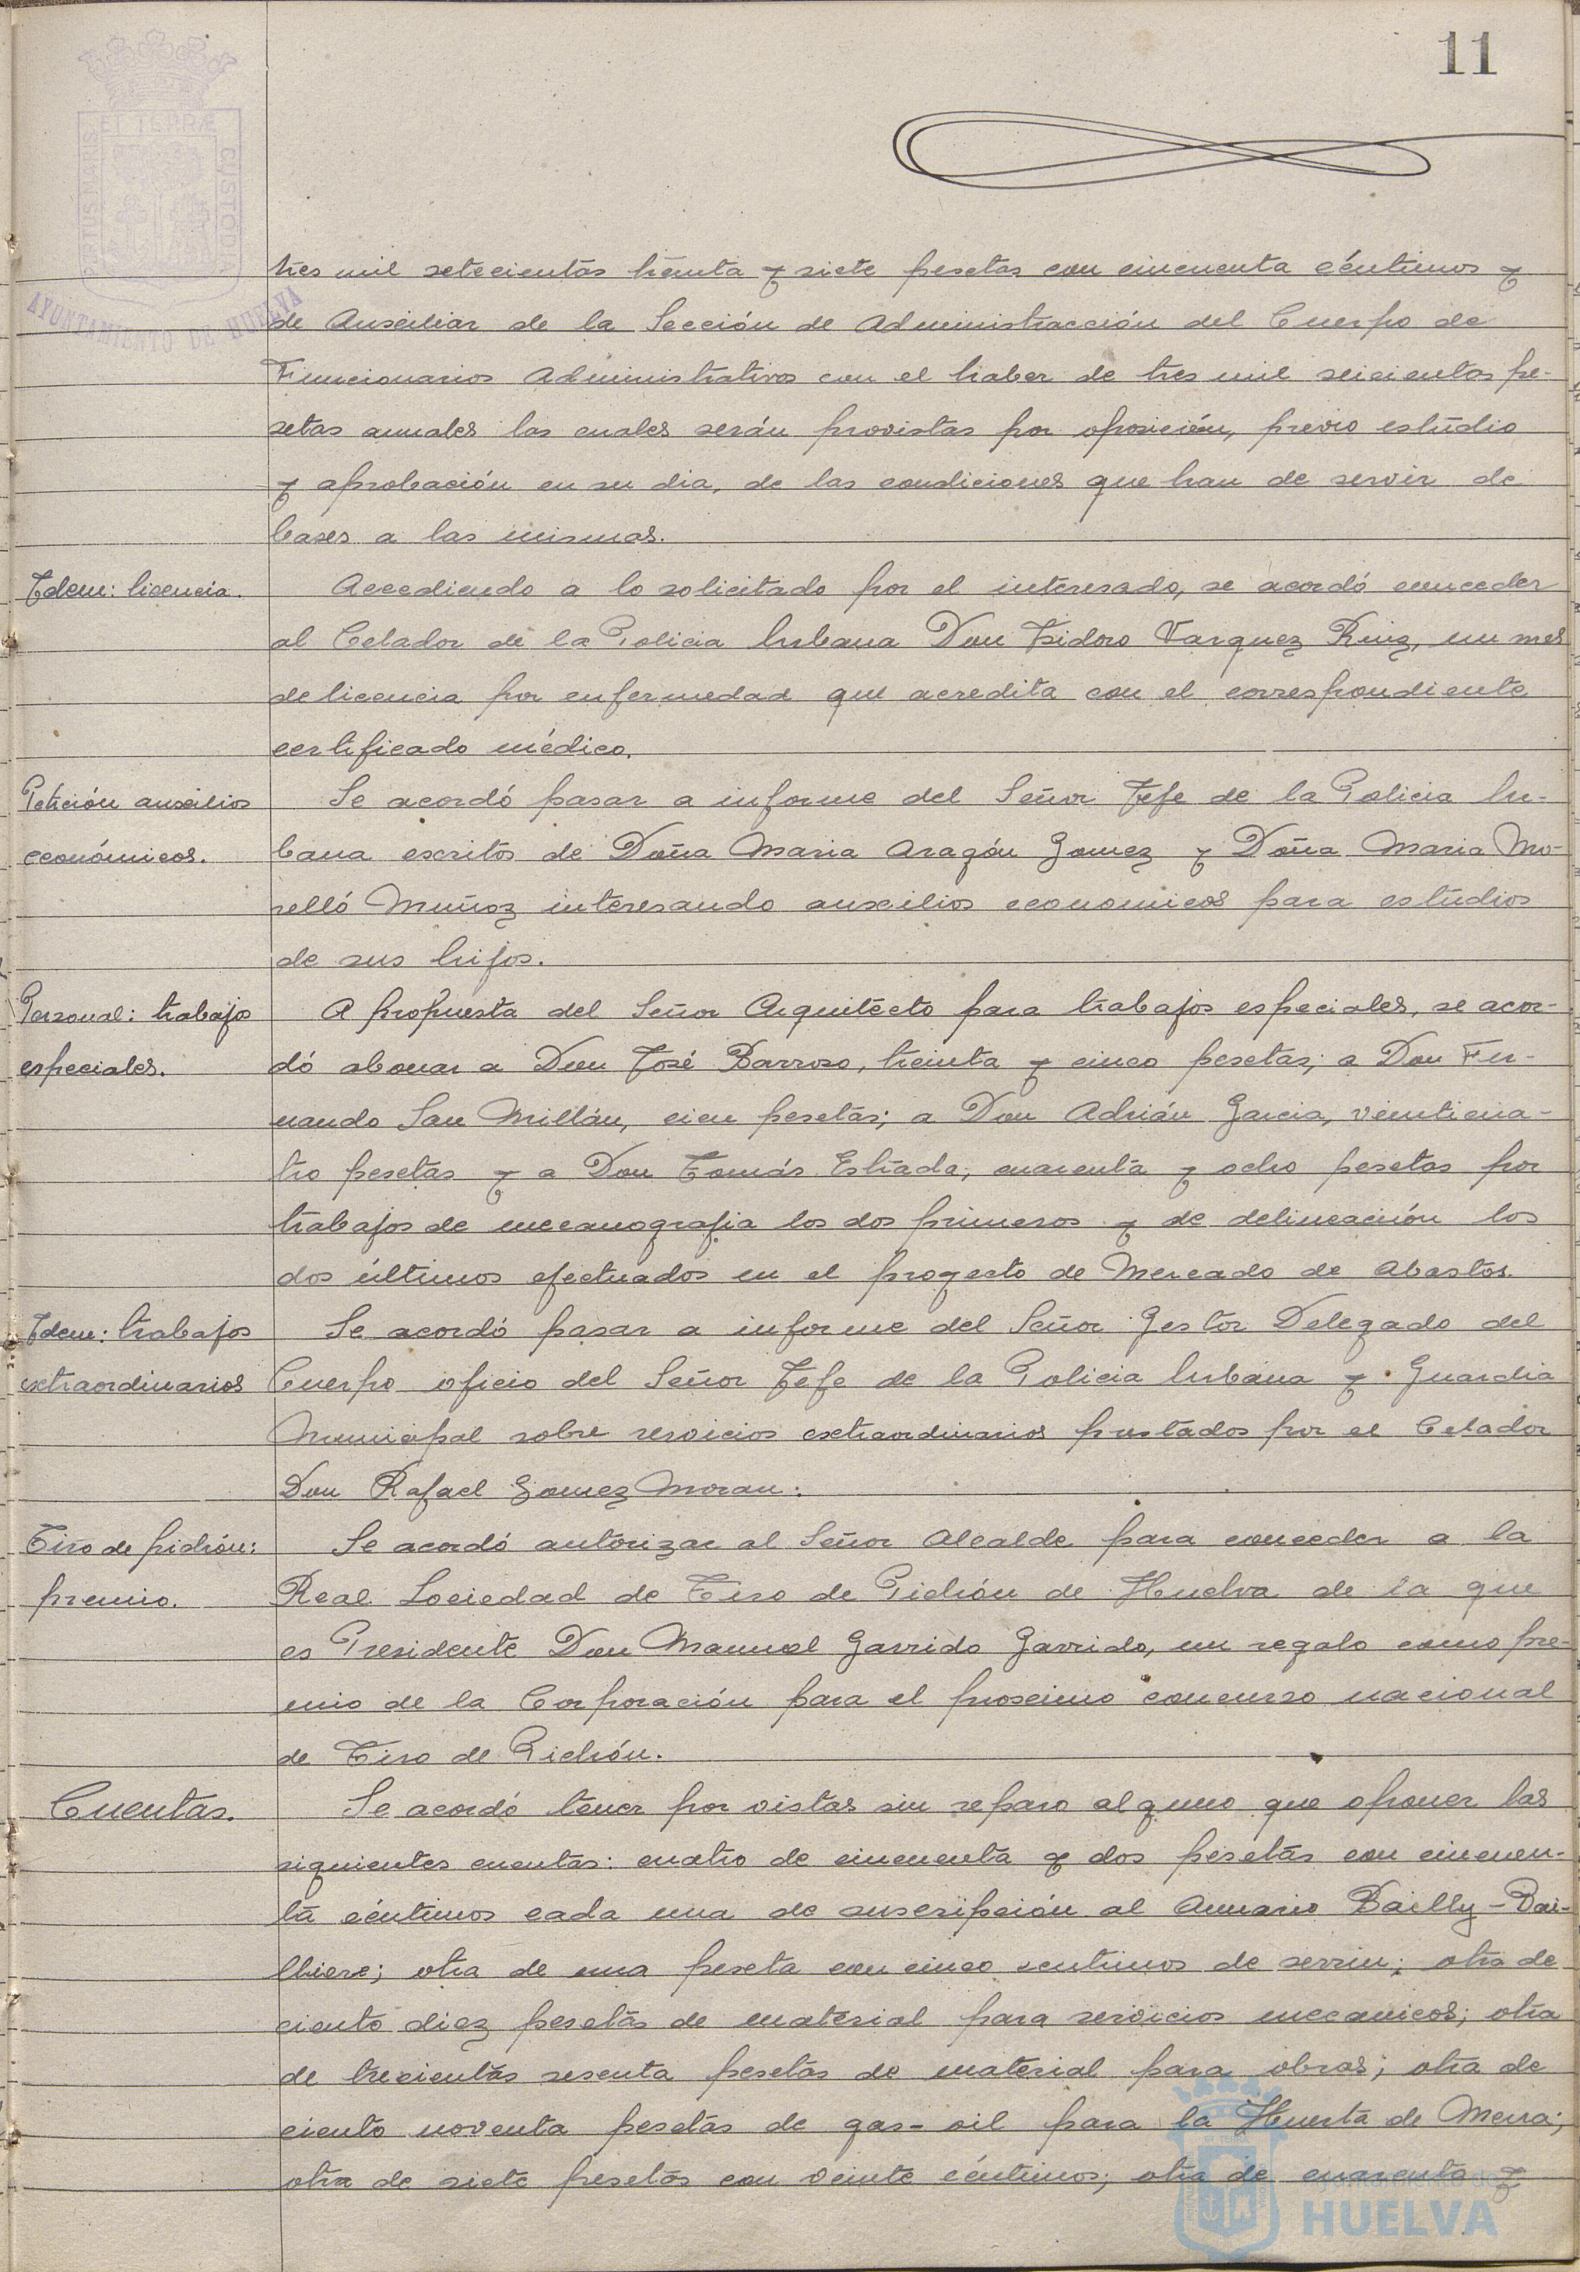 11
PORTUS MARIS ET TERRÆ CUSTODIA
AYUNTAMIENTO DE HUELVA
tres mil setecientas treinta y siete pesetas con cincuenta céntimos y
de Auxiliar de la Sección de Administracción del Cuerpo de
Funcionarios Administrativos con el haber de tres mil seicientas pe-
setas anuales las cuales serán provistas por oposición, previo estudio
y aprobación en su dia, de las condiciones que han de servir de
bases a las mismas.
Idem: licencia.
Accediendo a lo solicitado por el interesado, se acordó conceder
al Celador de la Policia Urbana Don Isidoro Vazquez Ruiz, un mes
de licencia por enfermedad que acredita con el correspondiente
certificado médico.
Petición auxilios
económicos.
Se acordó pasar a informe del Señor Jefe de la Policia Ur-
bana escritos de Doña Maria Aragón Gomez y Doña Maria Mo-
relló Muñoz interesando auxilios economicos para estudios
de sus hijos.
Personal: trabajos
especiales.
A propuesta del Señor Arquitecto para trabajos especiales, se acor-
dó abonar a Don José Barroso, treinta y cinco pesetas; a Don Fer-
nando San Millán, cien pesetas; a Don Adrián Garcia, veinticua-
tro pesetas y a Don Tomás Estrada, cuarenta y ocho pesetas por
trabajos de mecanografia los dos primeros y de delineación los
dos últimos efectuados en el proyecto de Mercado de Abastos.
Idem: trabajos
extraordinarios
Se acordó pasar a informe del Señor Gestor Delegado del
Cuerpo oficio del Señor Jefe de la Policia Urbana y Guardia
Municipal sobre servicios extraordinarios prestados por el Celador
Don Rafael Gomez Moran.
Tiro de pichón:
premio.
Se acordó autorizar al Señor Alcalde para conceder a la
Real Sociedad de Tiro de Pichón de Huelva de la que
es Presidente Don Manuel Garrido Garrido, un regalo como pre-
mio de la Corporación para el proximo concurso nacional
de Tiro de Pichón.
Cuentas.
Se acordó tener por vistas sin reparo alguno que oponer las
siguientes cuentas: cuatro de cincuenta y dos pesetas con cincuen-
ta céntimos cada una de suscripción al Anuario Bailly-Bai-
lliere; otra de una peseta con cinco centimos de serrin; otra de
ciento diez pesetas de material para servicios mecanicos; otra
de trecientas sesenta pesetas de material para obras; otra de
ciento noventa pesetas de gas-oil para la Huerta de Mena;
otra de siete pesetas con veinte céntimos; otra de cuarenta y
Ayuntamiento de
HUELVA